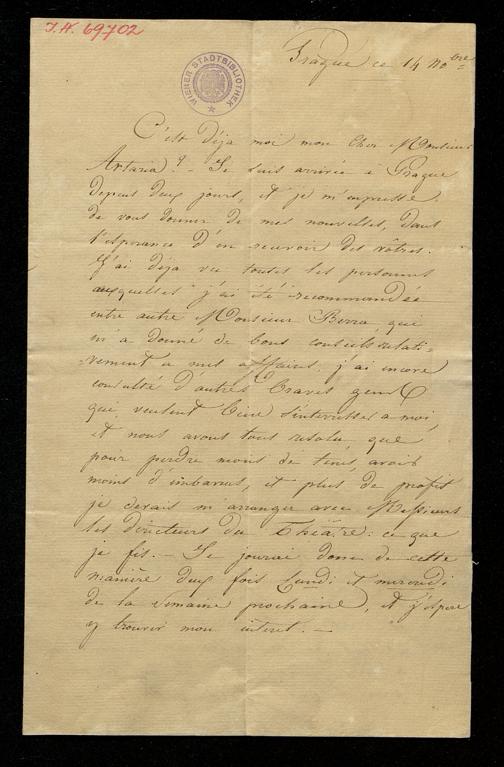 I.N. 69702
WIENER STADTBIBLIOTHEK
Prague ce 14 Nobre
C'est déja moi mon cher Monsieur
Artaria! - Je suis arrivée à Prague
depuis deux jours, et je m'empresse
de vous donner de mes nouvelles, dans
l'esperance d'en recevoir des vôtres.
J'ai déja vu toutes les personnes
auxquelles j'ai été recommandée
entre autre Monsieur Berra, qui
m'a donné de bons conseils relati-
vement a mes affaires; j'ai encore
consulté d'autres braves gens
qui veulent bien s'interesser a moi,
et nous avons tous resolu que
pour perdre moins de tems, avoir
moins d'embarras, et plus de profit
je devais m'arranger avec Messieurs
les directeurs du Théâtre: ce que
je fis. - Je jouerai donc de cette
manière deux fois Lundi et mercredi
de la semaine prochaine, et j'espere
y trouver mon interet. -